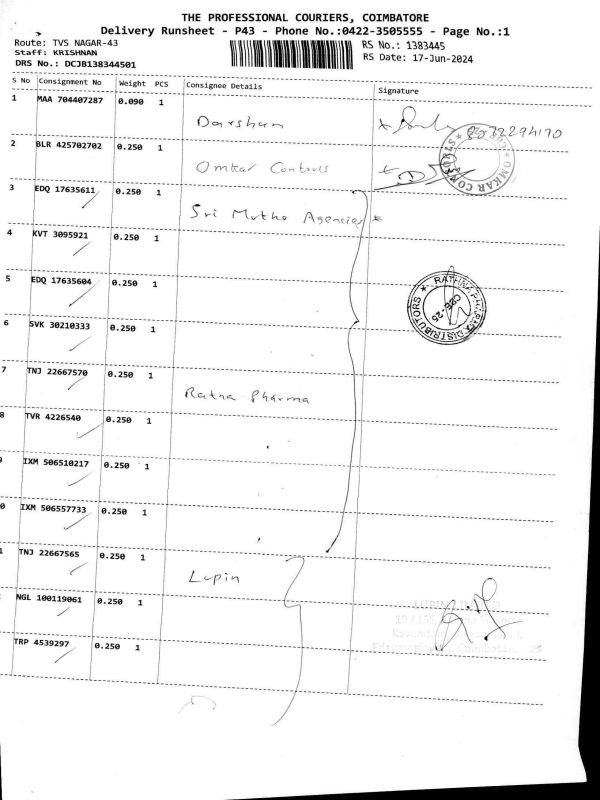 THE PROFESSIONAL COURIERS, COIMBATORE
Delivery Runsheet - P43 - Phone No.:0422-3505555 - Page No.:1
Route: TVS NAGAR-43
Staff: KRISHNAN
DRS No.: DCJB138344501
RS No.: 1383445
RS Date: 17-Jun-2024
S No Consignment No Weight PCS Consignee Details Signature
1 MAA 704407287 0.090 1
Darshan
2 BLR 425702702 0.250 1
Omkar Controls
OMKAR
3 EDQ 17635611 0.250 1
Sri Mutha Agencies
4 KVT 3095921 0.250 1
5 EDQ 17635604 0.250 1
RATHNA PHARMA DISTRIBUTORS
CBE-25
6 SVK 30210333 0.250 1
7 TNJ 22667570 0.250 1
Ratna Pharma
8 TVR 4226540 0.250 1
IXM 506510217 0.250 1
0 IXM 506557733 0.250 1
1 TNJ 22667565 0.250 1
Lupin
NGL 100119061 0.250 1
TRP 4539297 0.250 1